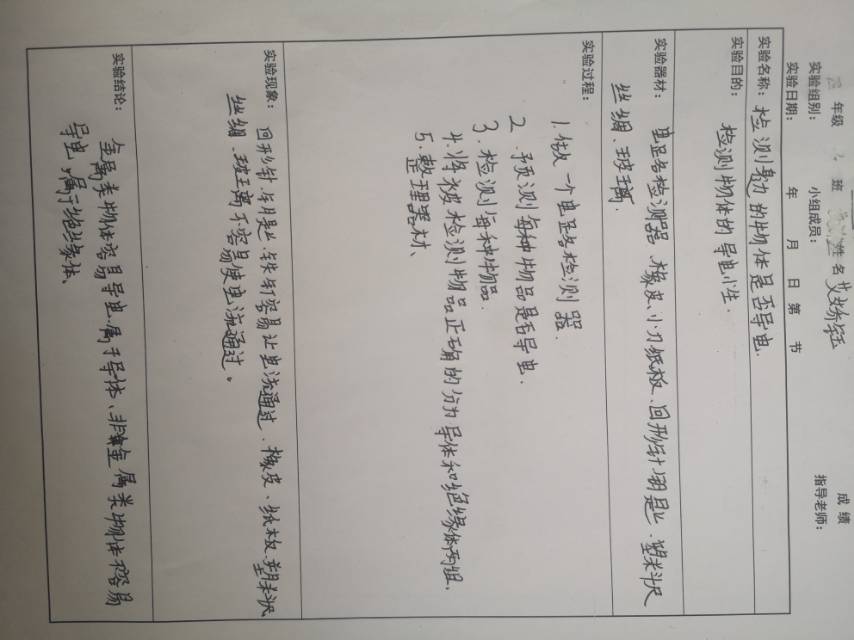 年级 班 姓名 成绩
实验组别： 小组成员： 指导老师：
实验日期： 年 月 日 第 节
实验名称：检测身边的物体是否导电
实验目的：
检测物体的导电性.
实验器材：电路检测器、橡皮、小刀、纸板、回形针、钥匙、塑料尺
丝绸、玻璃.
实验过程：
1.做一个电路检测器.
2.预测每种物品是否导电.
3.检测每种物品.
4.将被检测物品正确的分为导体和绝缘体两组.
5.整理器材、
实验现象：回形针、钥匙、铁钉容易让电流通过、橡皮、纸板、塑料尺
丝绸、玻璃不容易使电流通过。
实验结论：
金属类物体容易导电、属于导体、非金属类物体不容易
导电，属于绝缘体、